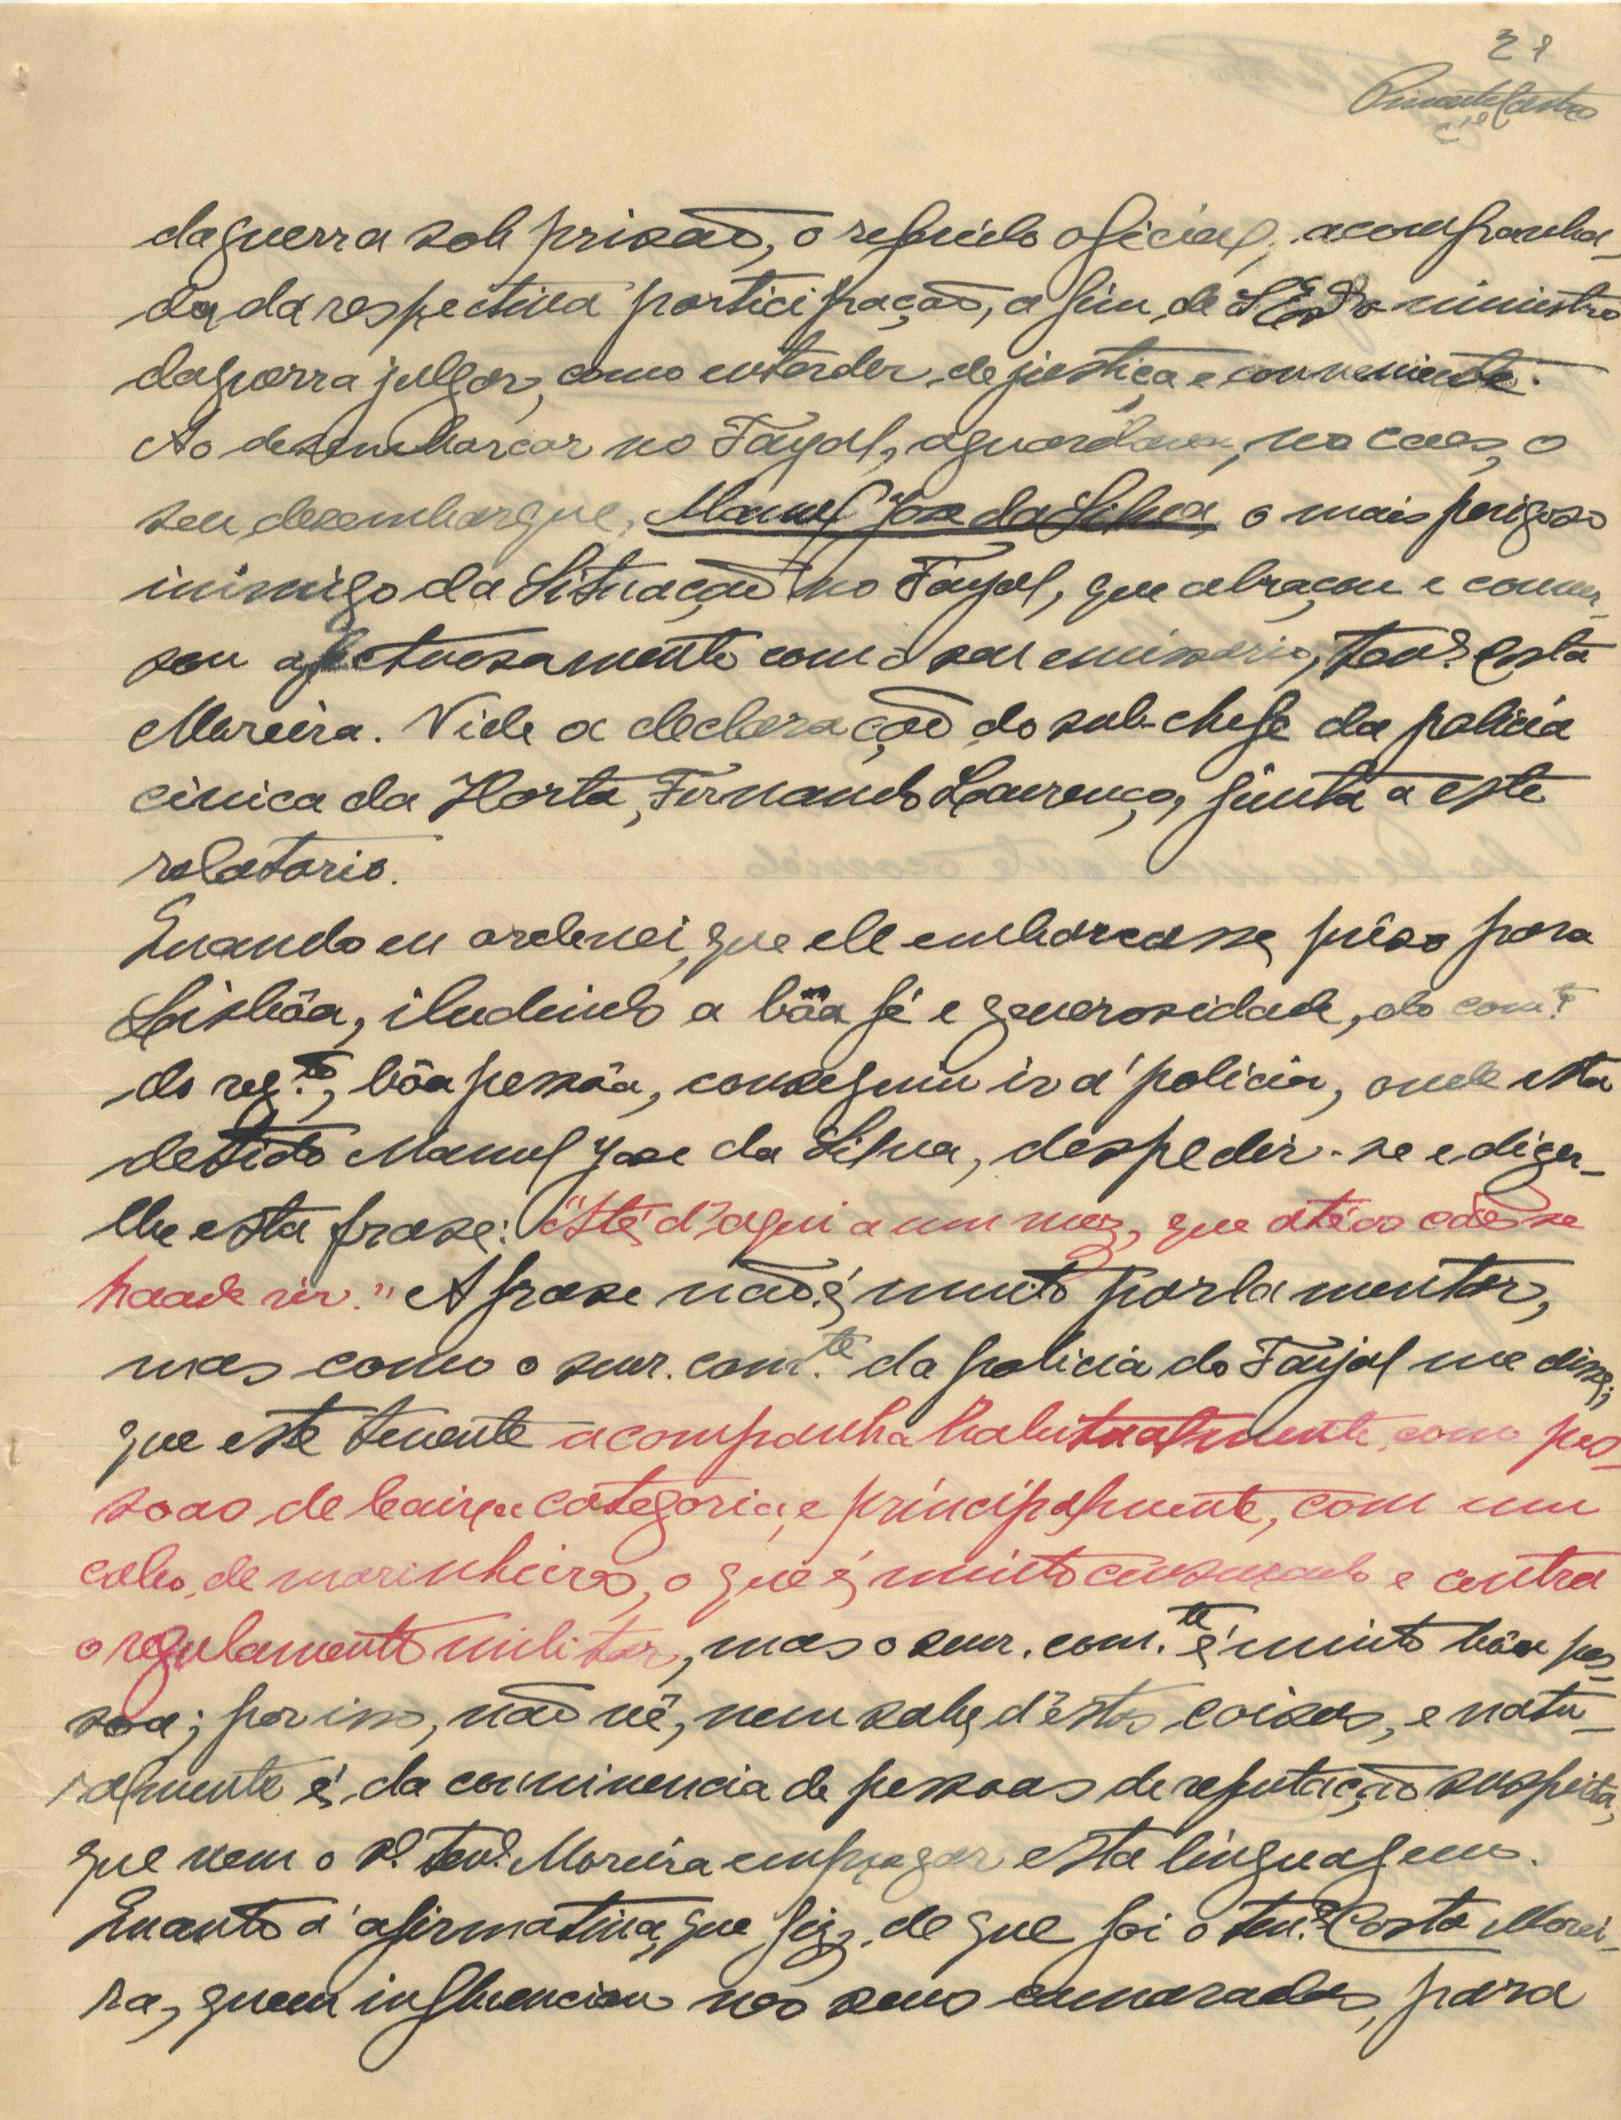 21
Pimentel Castro
da guerra sob prisão, o referido oficial, acompanha-
da da respectiva participação, a fim de S. Exª o ministro
da guerra julgar, como entender de justiça e conveniente.
Ao desembarcar no Fayal, aguardava, no caes, o
seu desembarque, Manuel Jose da Silva, o mais perigoso
inimigo da Situação no Fayal, que abraçou e conver-
sou afectuosamente com o seu emissario, tenᵉ Costa
Moreira. Vide a declaração do sub-chefe da policia
civica da Horta, Fernando Lourenço, junta a este
relatorio.
Quando eu ordenei, que ele embarcasse prêso para
Lisbôa, iludindo a bôa fé e generosidade, do comᵗᵉ
do regᵗᵒ, bôa pessôa, conseguiu ir á policia, onde esta
detido Manuel Jose da Silva, despedir-se e dizer-
lhe esta frase: "Até d'aqui a um mez, que até os cães se
haade vir." A frase não é muito parlamentar,
mas como o snr. comᵗᵉ da policia do Fayal me disse,
que este tenente acompanha habitualmente, com pes-
soas de baixa categoria, e principalmente, com um
cabo, de marinheiros, o que é muito censurado e contra
o regulamento militar, mas o snr. com.ᵗᵉ é muito bôa pes-
soa; por isso, não vê, nem sabe d'éstas coisas, e natu-
ralmente é, da convivencia de pessoas de reputação suspeita,
que vem o sʳ. tenᵉ. Moreira empregar esta linguagem.
Quanto á afirmativa, que fiz, de que foi o tenᵉ. Costa Morei-
ra, quem influenciou nos seus camaradas, para